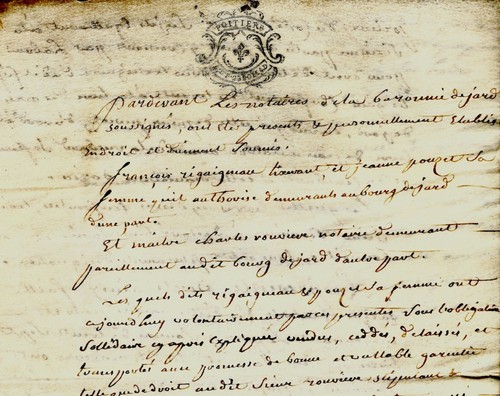 POITIERS
Pardevant Les notaires de la baronnie de jard
soussignés, ont été presents & personnellement Etablis
en droit et duement soumis.
françois rigaigneau et jeanne pouzet sa
femme qu'il authorise demeurants au bourg de jard
d'une part.
Et maitre charles rouviere notaire demeurant
pareillement audit bourg de jard d'autre part.
Les quels dits rigaigneau & pouzet sa femme ont
cejourdhuy volontairement par ces presentes sous l'obligation
sollidaire cy après Expliquée vendus, ceddés, delaissés, et
transportés avec promesse de bonne et vallable garentie
telle que de droit audit sieur rouviere